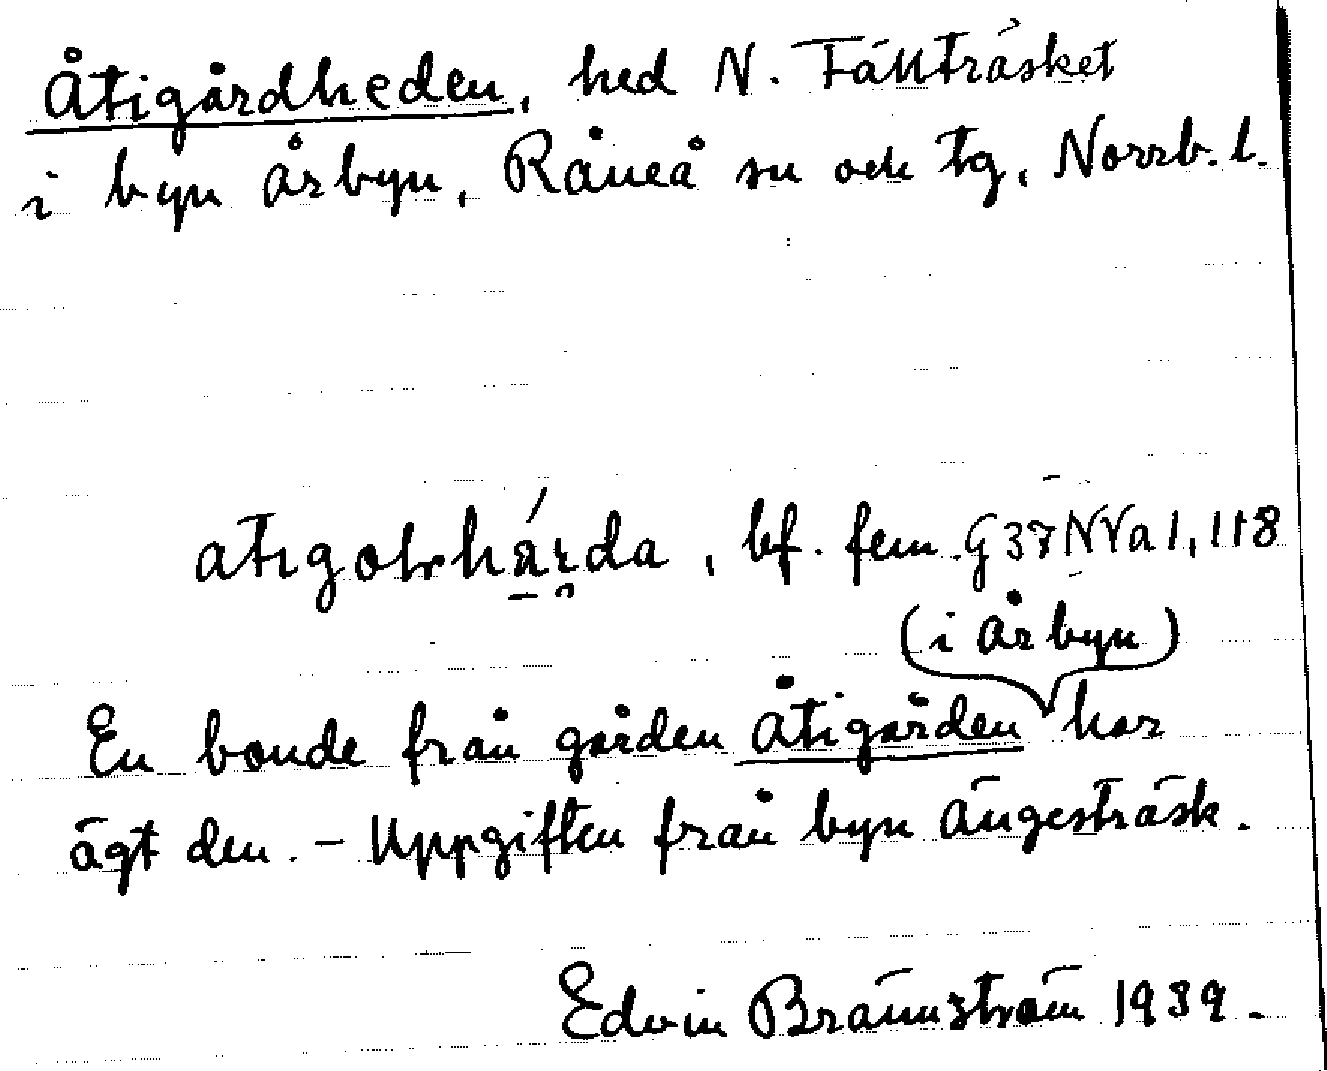 Åtigårdheden, hed N. Fällträsket
i byn Årbyn, Råneå sn och tg, Norrb. l.
atıgolrhárda, bf. fem. G37NVa1,118
(i Årbyn)
En bonde från gården Åtigården har
ägt den. – Uppgiften från byn Ängesträsk.
Edvin Brännström 1939.